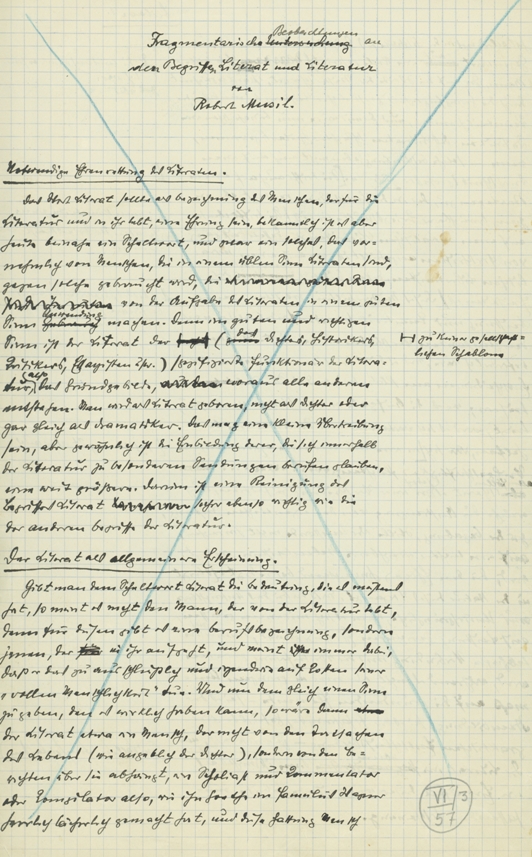 Beobachtungen
Fragmentarische Untersuchung an
den Begriffen Literat und Literatur
von
Robert Musil.
Notwendige Ehrenrettung des Literaten.
Das Wort Literat sollte als Bezeichnung des Menschen, der für die
Literatur und in ihr lebt, eine Ehrung sein, bekanntlich ist es aber
heute beinahe ein Scheltwort, und zwar ein solches, das vor-
nehmlich von Menschen, die in einem üblen Sinn Literaten sind,
gegen solche gebraucht wird, die
von der Aufgabe des Literaten in einem guten
Sinn machen. Denn im guten und richtigen
Sinn ist der Literat der ( des Dichters, Historikers,
zu keiner gesellschaft-
lichen Schablone
Kritikers, Essayisten usw.) spezifizierte Funktionär der Litera-
(also)
tur, das Grundgebilde, woraus alle anderen
entstehen. Man wird als Literat geboren, nicht als Dichter oder
gar gleich als Dramatiker. Das mag eine kleine Übertreibung
sein, aber gewöhnlich ist die Einbildung derer, die sich innerhalb
der Literatur zu besonderen Sendungen berufen glauben,
eine weit größere. Darum ist eine Reinigung des
Begriffes Literat sicher ebenso wichtig wie die
der anderen Begriffe der Literatur.
Der Literat als allgemeinere Erscheinung.
Gibt man dem Scheltwort Literat die Bedeutung, die es meistens
hat, so meint es nicht den Mann, der von der Literatur lebt,
denn für diesen gibt es eine Berufsbezeichnung, sondern
jenen, der in ihr aufgeht, und meint immer dabei,
daß er das zu ausschließlich und irgendwie auf Kosten seiner
"vollen Menschlichkeit" tue. Um nun dem gleich einen Sinn
zu geben, den es wirklich haben kann, so wäre dann
der Literat etwa ein Mensch, der nicht von den Tatsachen
des Lebens (wie angeblich der Dichter), sondern von den Be-
richten über sie abhängt, ein Scholiast und Kommentator
oder Kompilator also, wie ihn Goethe im Famulus Wagner
herrlich lächerlich gemacht hat, und diese Gattung Mensch
VI 3
57